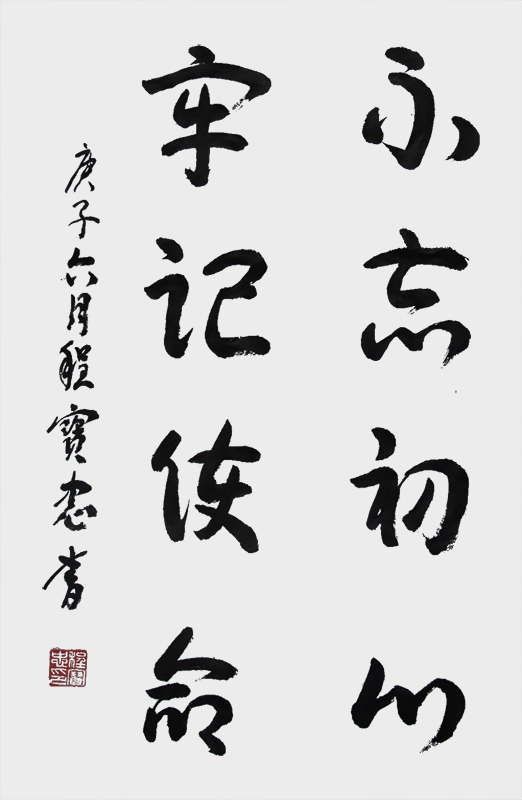 不忘初心
牢记使命
庚子六月程寶忠書
程寶忠印